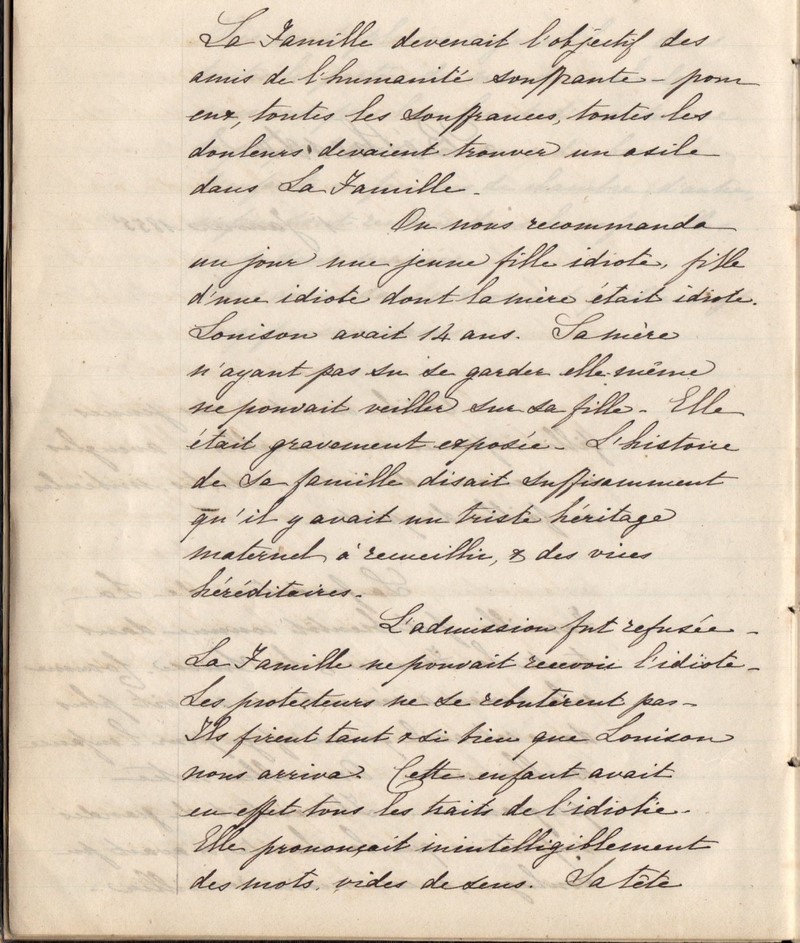 La Famille devenait l'objectif des
amis de l'humanité souffrante - pour
eux, toutes les souffrances, toutes les
douleurs devaient trouver un asile
dans La Famille.
On nous recommanda
un jour une jeune fille idiote, fille
d'une idiote dont la mère était idiote.
Louison avait 14 ans. Sa mère
n'ayant pas su se garder elle-même
ne pouvait veiller sur sa fille - Elle
était gravement exposée - L'histoire
de sa famille disait suffisamment
qu'il y avait un triste héritage
maternel à recueillir, & des vices
héréditaires.
L'admission fut refusée -
La Famille ne pouvait recevoir l'idiote -
Les protecteurs ne se rebutèrent pas -
Ils firent tant & si bien que Louison
nous arriva. Cette enfant avait
en effet tous les traits de l'idiotie.
Elle prononçait inintelligiblement
des mots vides de sens. Sa tête